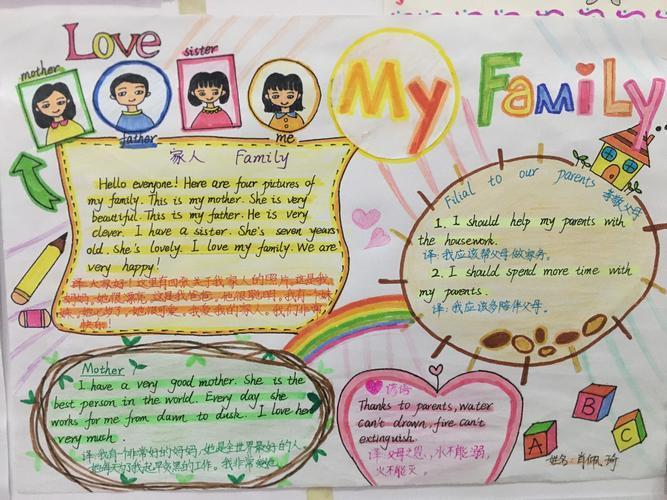 Love
mother
father
sister
me
My Family
家人 Family
Hello everyone! Here are four pictures of
my family. This is my mother. She is very
beautiful. This is my father. He is very
clever. I have a sister. She's seven years
old. She's lovely. I love my family. We are
very happy!
译:大家好!这里有四张关于我家人的照片,这是我
妈妈,她很漂亮,这是我爸爸,他很聪明,我有一个妹
妹,她七岁了,她很可爱,我爱我的家人。我们非常
快乐!
Filial to our parents
孝敬父母
1. I should help my parents with
the housework.
译:我应该帮父母做家务。
2. I should spend more time with
my parents.
译:我应该多陪伴父母。
Mother
I have a very good mother. She is the
best person in the world. Every day she
works for me from dawn to dusk. I love her
very much.
译:我有一个非常好的妈妈,她是全世界最好的人,
她每天为了我起早贪黑的工作。我非常爱她
谚语
Thanks to parents, water
can't drown, fire can't
extinguish.
译:父母之恩,水不能溺,
火不能灭。
A
B
C
姓名:肖佩